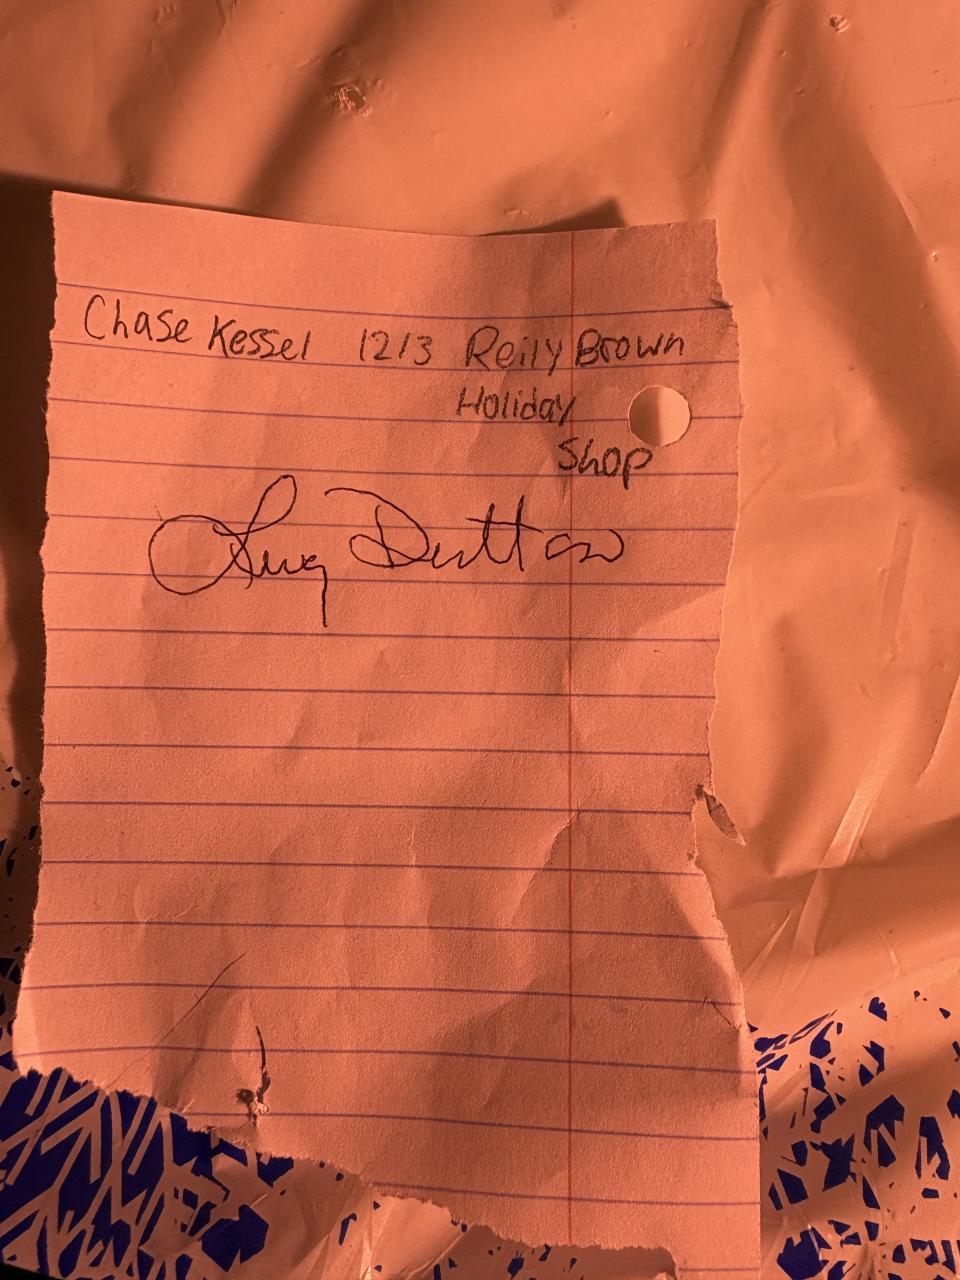 Chase Kessel 12/3 Reily Brown
Holiday
Shop
Lucy Dutton